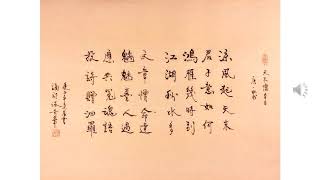 天末懷李白
唐 杜甫
涼風起天末
君子意如何
鴻雁幾時到
江湖秋水多
文章憎命達
魑魅喜人過
應共冤魂語
投詩贈汨羅